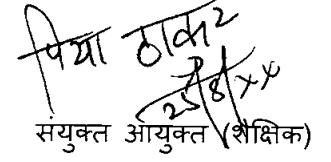 पिया ठाकर
25/8/xx
संयुक्त आयुक्त (शैक्षिक)